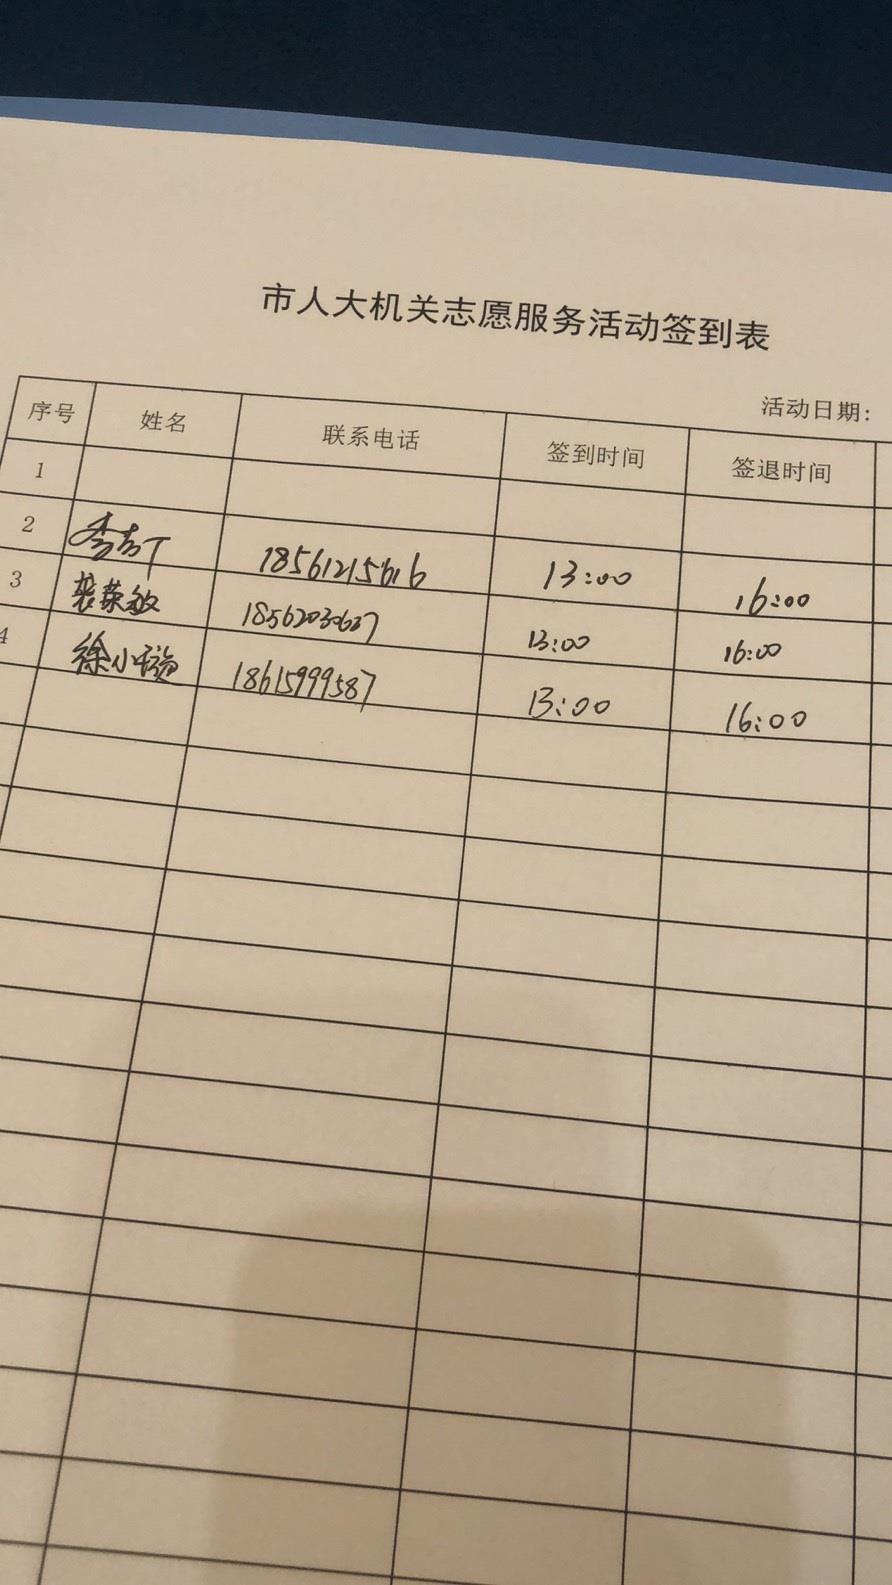 市人大机关志愿服务活动签到表
活动日期:
序号 姓名 联系电话 签到时间 签退时间
1
2 18561215616 13:00 16:00
3 裴荣敏 18562030637 13:00 16:00
4 徐小璇 18615999587 13:00 16:00